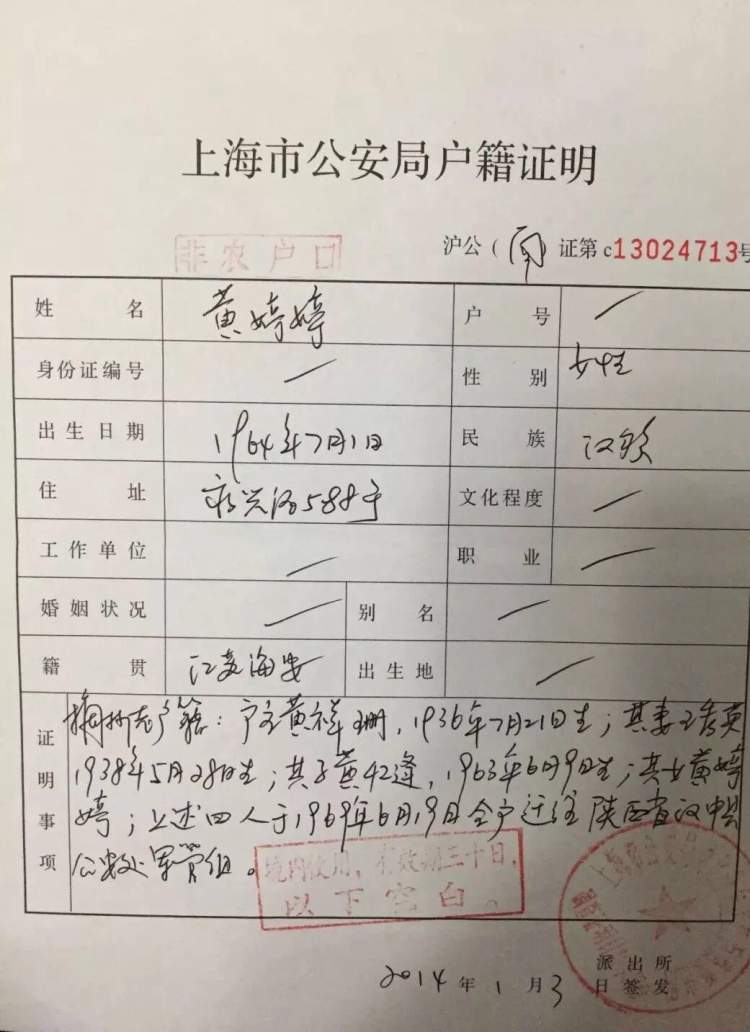 上海市公安局户籍证明
非农户口
沪公（ ）证第c13024713号
姓名 黄婷婷 户号 一
身份证编号 一 性别 女性
出生日期 1964年7月1日 民族 汉族
住址 588号 文化程度 一
工作单位 一 职业 一
婚姻状况 一 别名 一
籍贯 江苏海安 出生地 一
证明事项
户籍：户主黄祥珊，1936年7月21日生；其妻王秀英
1938年5月28日生；其子黄 逢，1963年6月9日生；其女黄婷
婷；上述四人于1969年6月19日全户迁往陕西省汉中县
公安处军管组。
境内使用，有效期三十日，
以下空白。
派出所
2014年1月3日签发